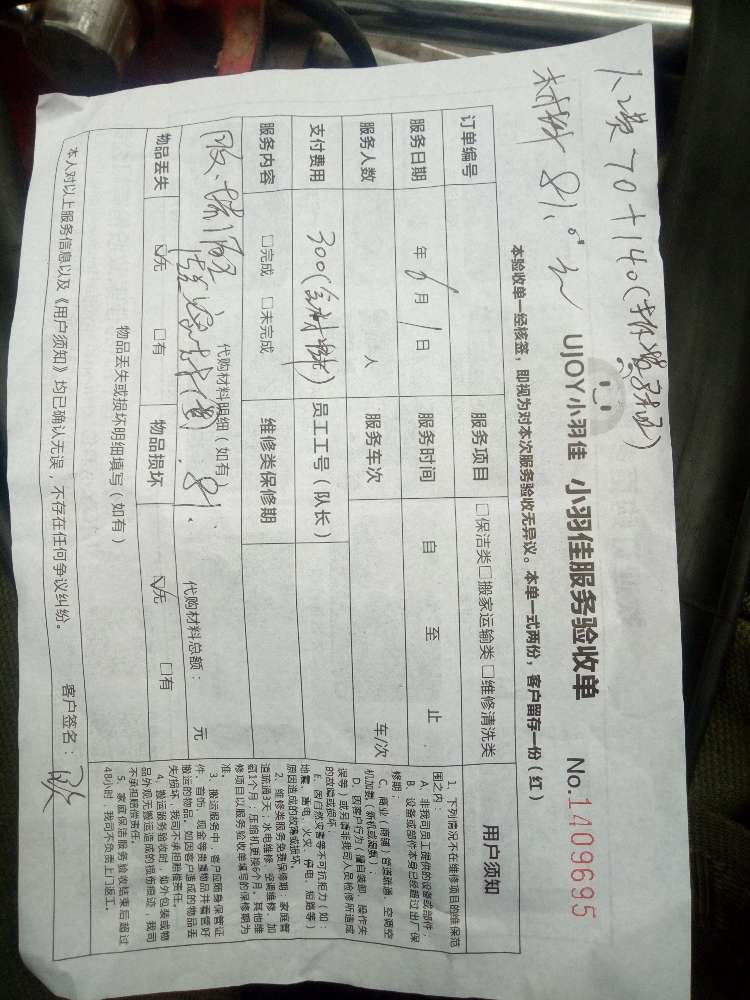 人工费 70+140(
材料 81.0元
UJOY小羽佳 小羽佳服务验收单 No.1409695
本验收单一经核签，即视为对本次服务验收无异议。本单一式两份，客户留存一份（红）
订单编号 服务项目 □保洁类□搬家运输类□维修清洗类
服务日期 年 8月 1日 服务时间 自 至 止
服务人数 人 服务车次 车/次
支付费用 300(含材料) 员工工号（队长）
服务内容 □完成 □未完成 维修类保修期
代购材料明细（如有） 81. 代购材料总额： 元
物品丢失 ☑无 □有 物品损坏 ☑无 □有
物品丢失或损坏明细填写（如有）
本人对以上服务信息以及《用户须知》均已确认无误，不存在任何争议纠纷。 客户签名：
用户须知
1、下列情况不在维修项目的维保范
围之内：
A、非我司员工提供的设备或部件；
B、设备或部件本身已经超过出厂保
修期；
C、商业（商铺）管道疏通、空调空
机加氟（新机或漏氟）；
D、因客户行为（擅自装卸、操作失
误等）或另请非我司人员检修所造成
的故障或损坏
E、因自然灾害等不可抗拒力（如：
地震、雷电、火灾、停电、短路等）
原因造成的故障或损坏
2、维修类服务免费保修期：家庭管
道疏通3天，水电维修、空调维修、加
氟1个月；压缩机更换6个月，其他维
修项目以服务验收单填写的保修期为
准
3、搬运服务中，客户应随身保管证
件、首饰、现金等贵重物品并看管好
搬运的物品。如因客户造成的物品丢
失/损坏，我司不承担赔偿责任。
4、搬运服务验收时，如外包装或物
品外观无搬运造成的损伤痕迹，我司
不承担赔偿责任。
5、家庭保洁服务验收结束后超过
48小时，我司不负责上门返工。